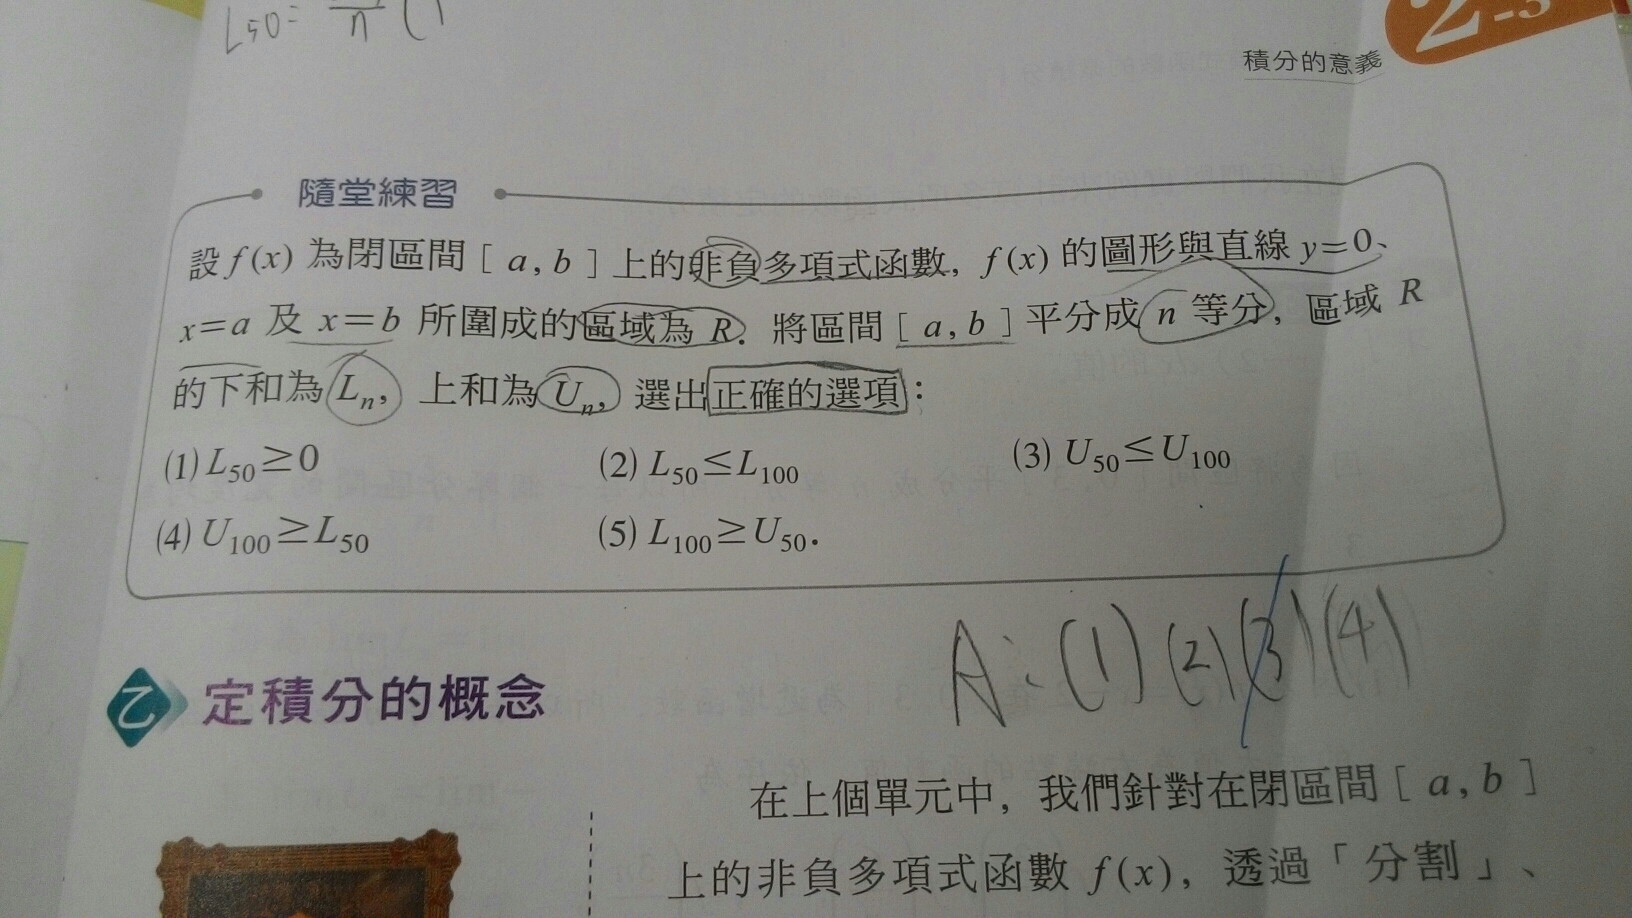 L50 = n (1
2-3
積分的意義
隨堂練習
設 f(x) 為閉區間 [ a, b ] 上的非負多項式函數, f(x) 的圖形與直線 y=0、
x=a 及 x=b 所圍成的區域為 R. 將區間 [ a, b ] 平分成 n 等分, 區域 R
的下和為 Ln, 上和為 Un, 選出正確的選項:
(1) L50≥0 (2) L50≤L100 (3) U50≤U100
(4) U100≥L50 (5) L100≥U50.
A: (1) (2) (3) (4)
乙 定積分的概念
在上個單元中, 我們針對在閉區間 [ a, b ]
上的非負多項式函數 f(x), 透過「分割」、